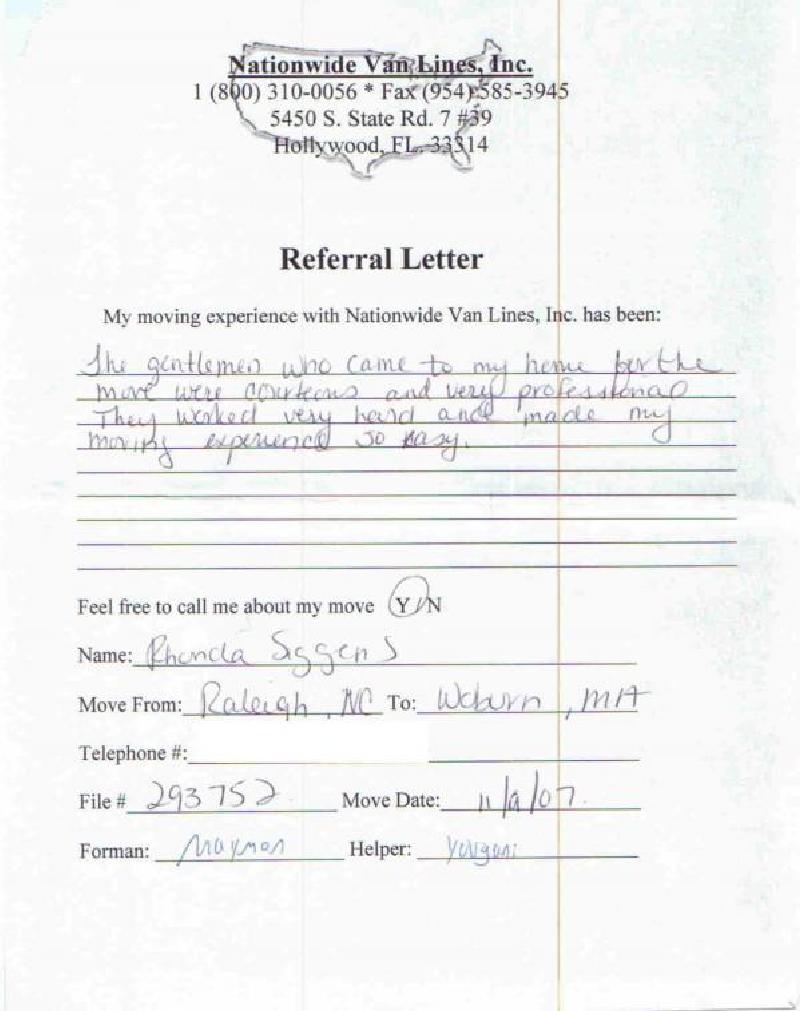 Nationwide Van Lines, Inc.
1 (800) 310-0056 * Fax (954) 585-3945
5450 S. State Rd. 7 #39
Hollywood, FL. 33314
Referral Letter
My moving experience with Nationwide Van Lines, Inc. has been:
The gentlemen who came to my home for the
move were courteous and very professional
They worked very hard and made my
moving experience so easy.
Feel free to call me about my move Y/N
Name: Rhonda Siggens
Move From: Raleigh, NC To: Woburn, MA
Telephone #:
File # 293752 Move Date: 11/ /07
Forman: Helper: